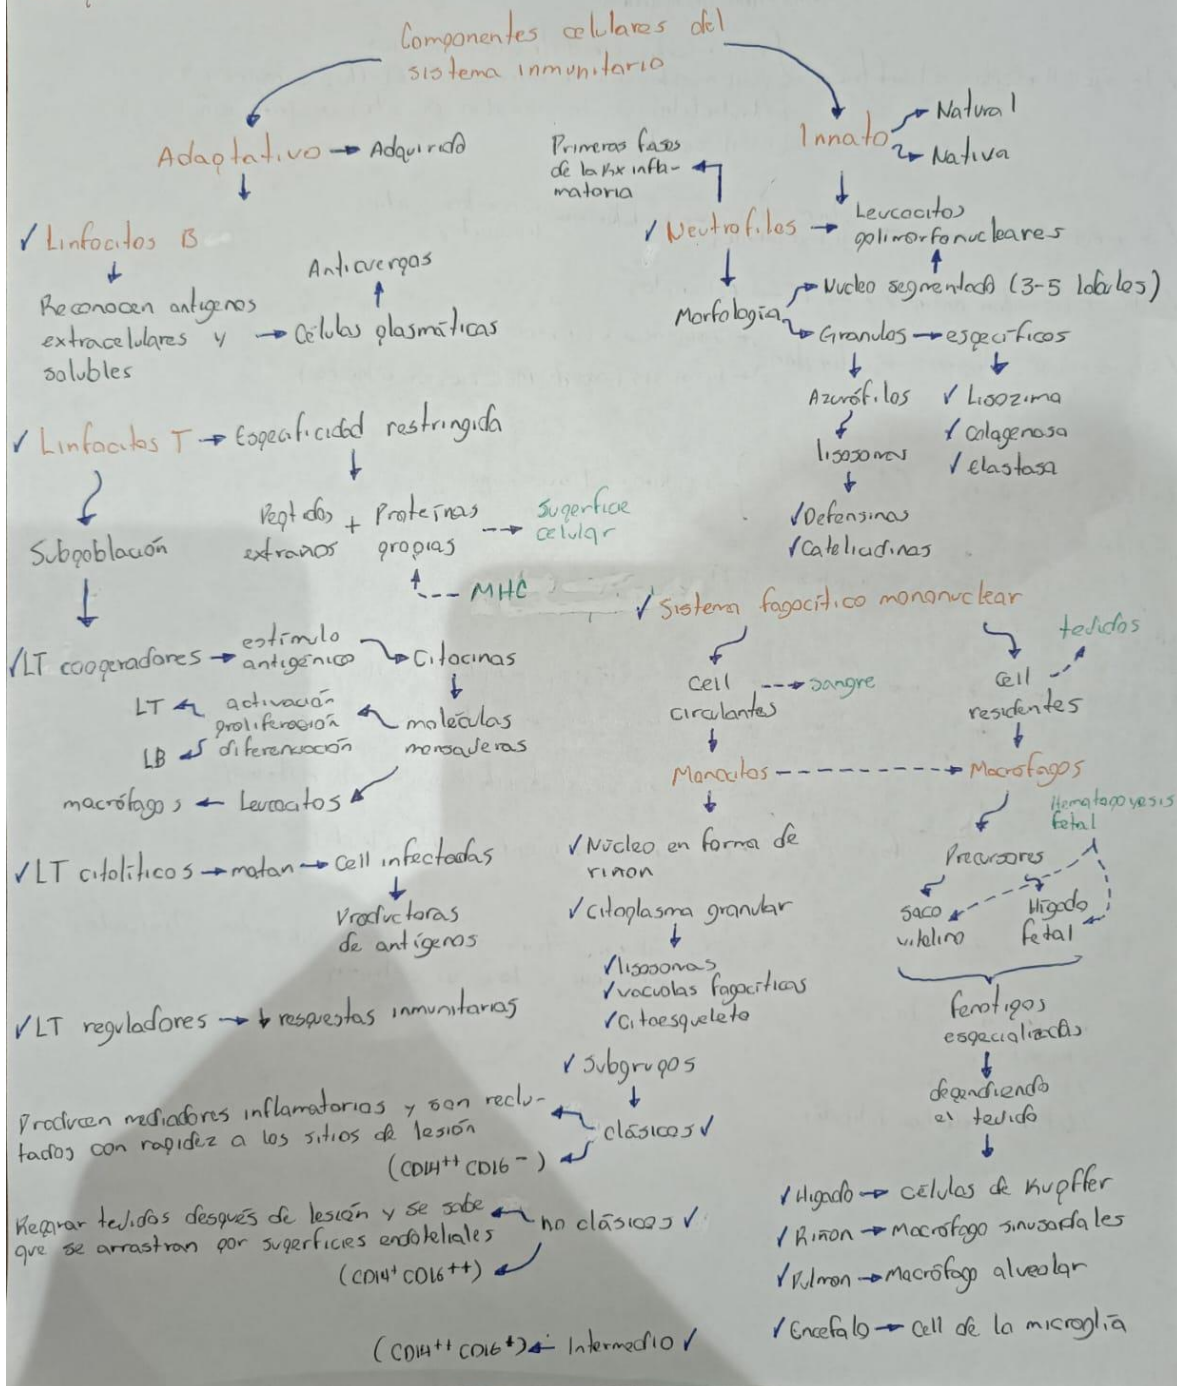 Componentes celulares del
sistema inmunitario
Adaptativo → Adquirido
✓ Linfocitos B
Anticuerpos
Reconocen antígenos
extracelulares y → Células plasmáticas
solubles
✓ Linfocitos T → Especificidad restringida
Peptidos + Proteínas --→ Superficie
extraños propias celular
MHC
Subpoblación
✓LT cooperadores → estímulo
antigénico → Citocinas
LT ← activación
proliferación ← moléculas
LB ← diferenciación mensajeras
macrófagos ← Leucocitos
✓LT citolíticos → matan → Cell infectadas
Productoras
de antígenos
✓LT reguladores → ↓ respuestas inmunitarias
Innato → Natural
→ Nativa
Primeras fases
de la Rx infla-
matoria
✓ Neutrofilos → Leucocitos
polimorfonucleares
Morfología → Nucleo segmentado (3-5 lobules)
→ Granulos → específicos
Azurófilos ✓ Lisozima
lisosomas ✓ Colagenasa
✓ elastasa
✓Defensinas
✓Catelicidinas
✓ Sistema fagocítico mononuclear
Cell --→ sangre
circulantes
Cell --→ tejidos
residentes
Monocitos --→ Macrófagos
✓Núcleo en forma de
riñon
✓Citoplasma granular
✓lisosomas
✓vacuolas fagocíticas
✓Citoesqueleto
✓ Subgrupos
clásicos ✓
Producen mediadores inflamatorios y son reclu-
tados con rapidez a los sitios de lesión
(CD14++ CD16-)
no clásicos ✓
Reparar tejidos después de lesión y se sabe
que se arrastran por superficies endoteliales
(CD14+ CD16++)
(CD14++ CD16+) ← Intermedio ✓
Hematopoyesis
fetal
Precursores
saco
vitelino
Higado
fetal
fenotipos
especializados
dependiendo
el tejido
✓Higado → Células de Kupffer
✓Riñon → Macrófago sinusoidales
✓Pulmon → Macrófago alveolar
✓Encefalo → Cell de la microglía